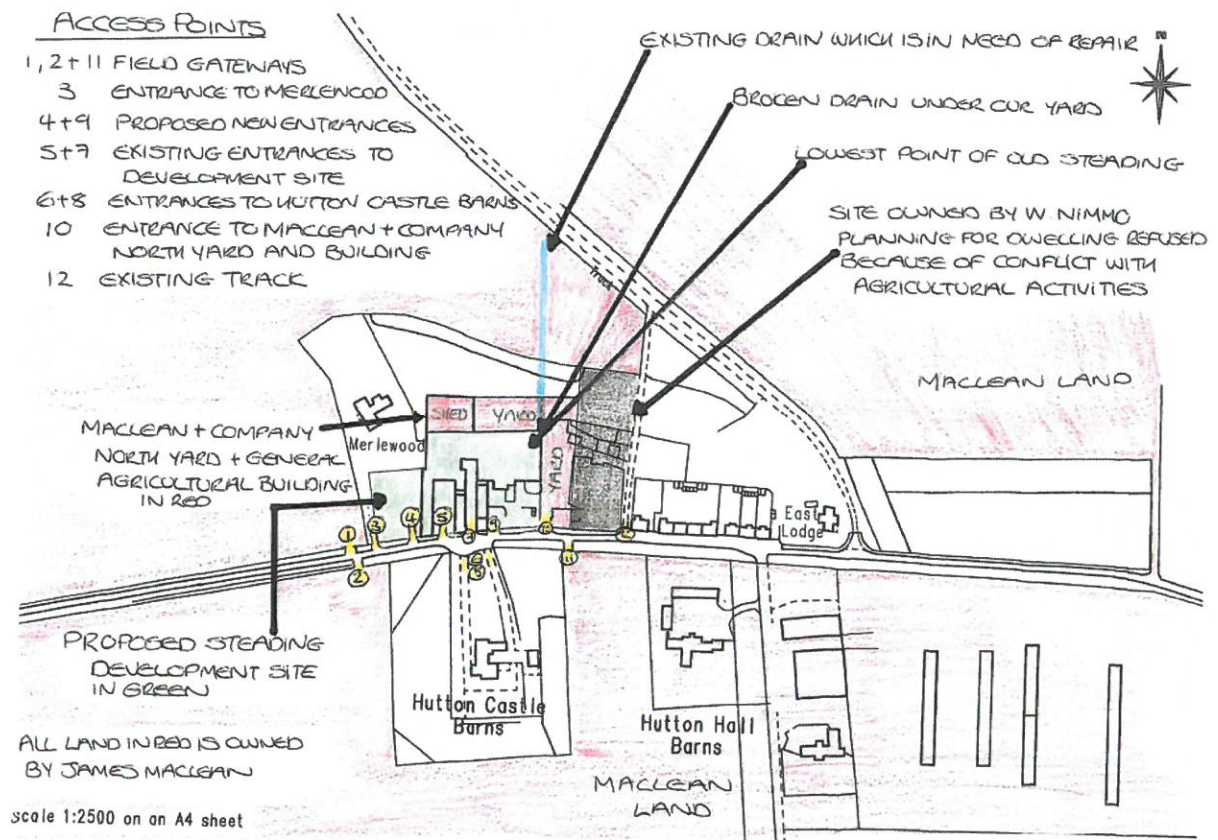 ACCESS POINTS
1, 2 + 11 FIELD GATEWAYS
3 ENTRANCE TO MERLEWOOD
4+9 PROPOSED NEW ENTRANCES
5+7 EXISTING ENTRANCES TO
DEVELOPMENT SITE
6+8 ENTRANCES TO HUTTON CASTLE BARNS
10 ENTRANCE TO MACLEAN + COMPANY
NORTH YARD AND BUILDING
12 EXISTING TRACK
EXISTING DRAIN WHICH IS IN NEED OF REPAIR
N
BROKEN DRAIN UNDER OUR YARD
LOWEST POINT OF OLD STEADING
SITE OWNED BY W. NIMMO
PLANNING FOR DWELLING REFUSED
BECAUSE OF CONFLICT WITH
AGRICULTURAL ACTIVITIES
Track
MACLEAN LAND
SHED
YARD
Merlewood
MACLEAN + COMPANY
NORTH YARD + GENERAL
AGRICULTURAL BUILDING
IN RED
YARD
East
Lodge
1
3
4
5
9
11
2
PROPOSED STEADING
DEVELOPMENT SITE
IN GREEN
Hutton Castle
Barns
Hutton Hall
Barns
ALL LAND IN RED IS OWNED
BY JAMES MACLEAN
MACLEAN
LAND
scale 1:2500 on an A4 sheet